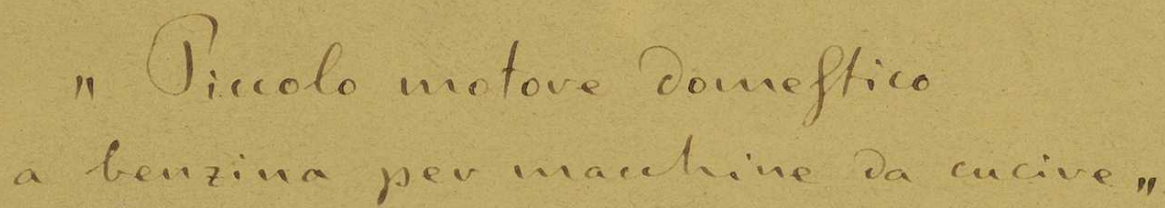 „ Piccolo motore domestico
a benzina per macchine da cucire „